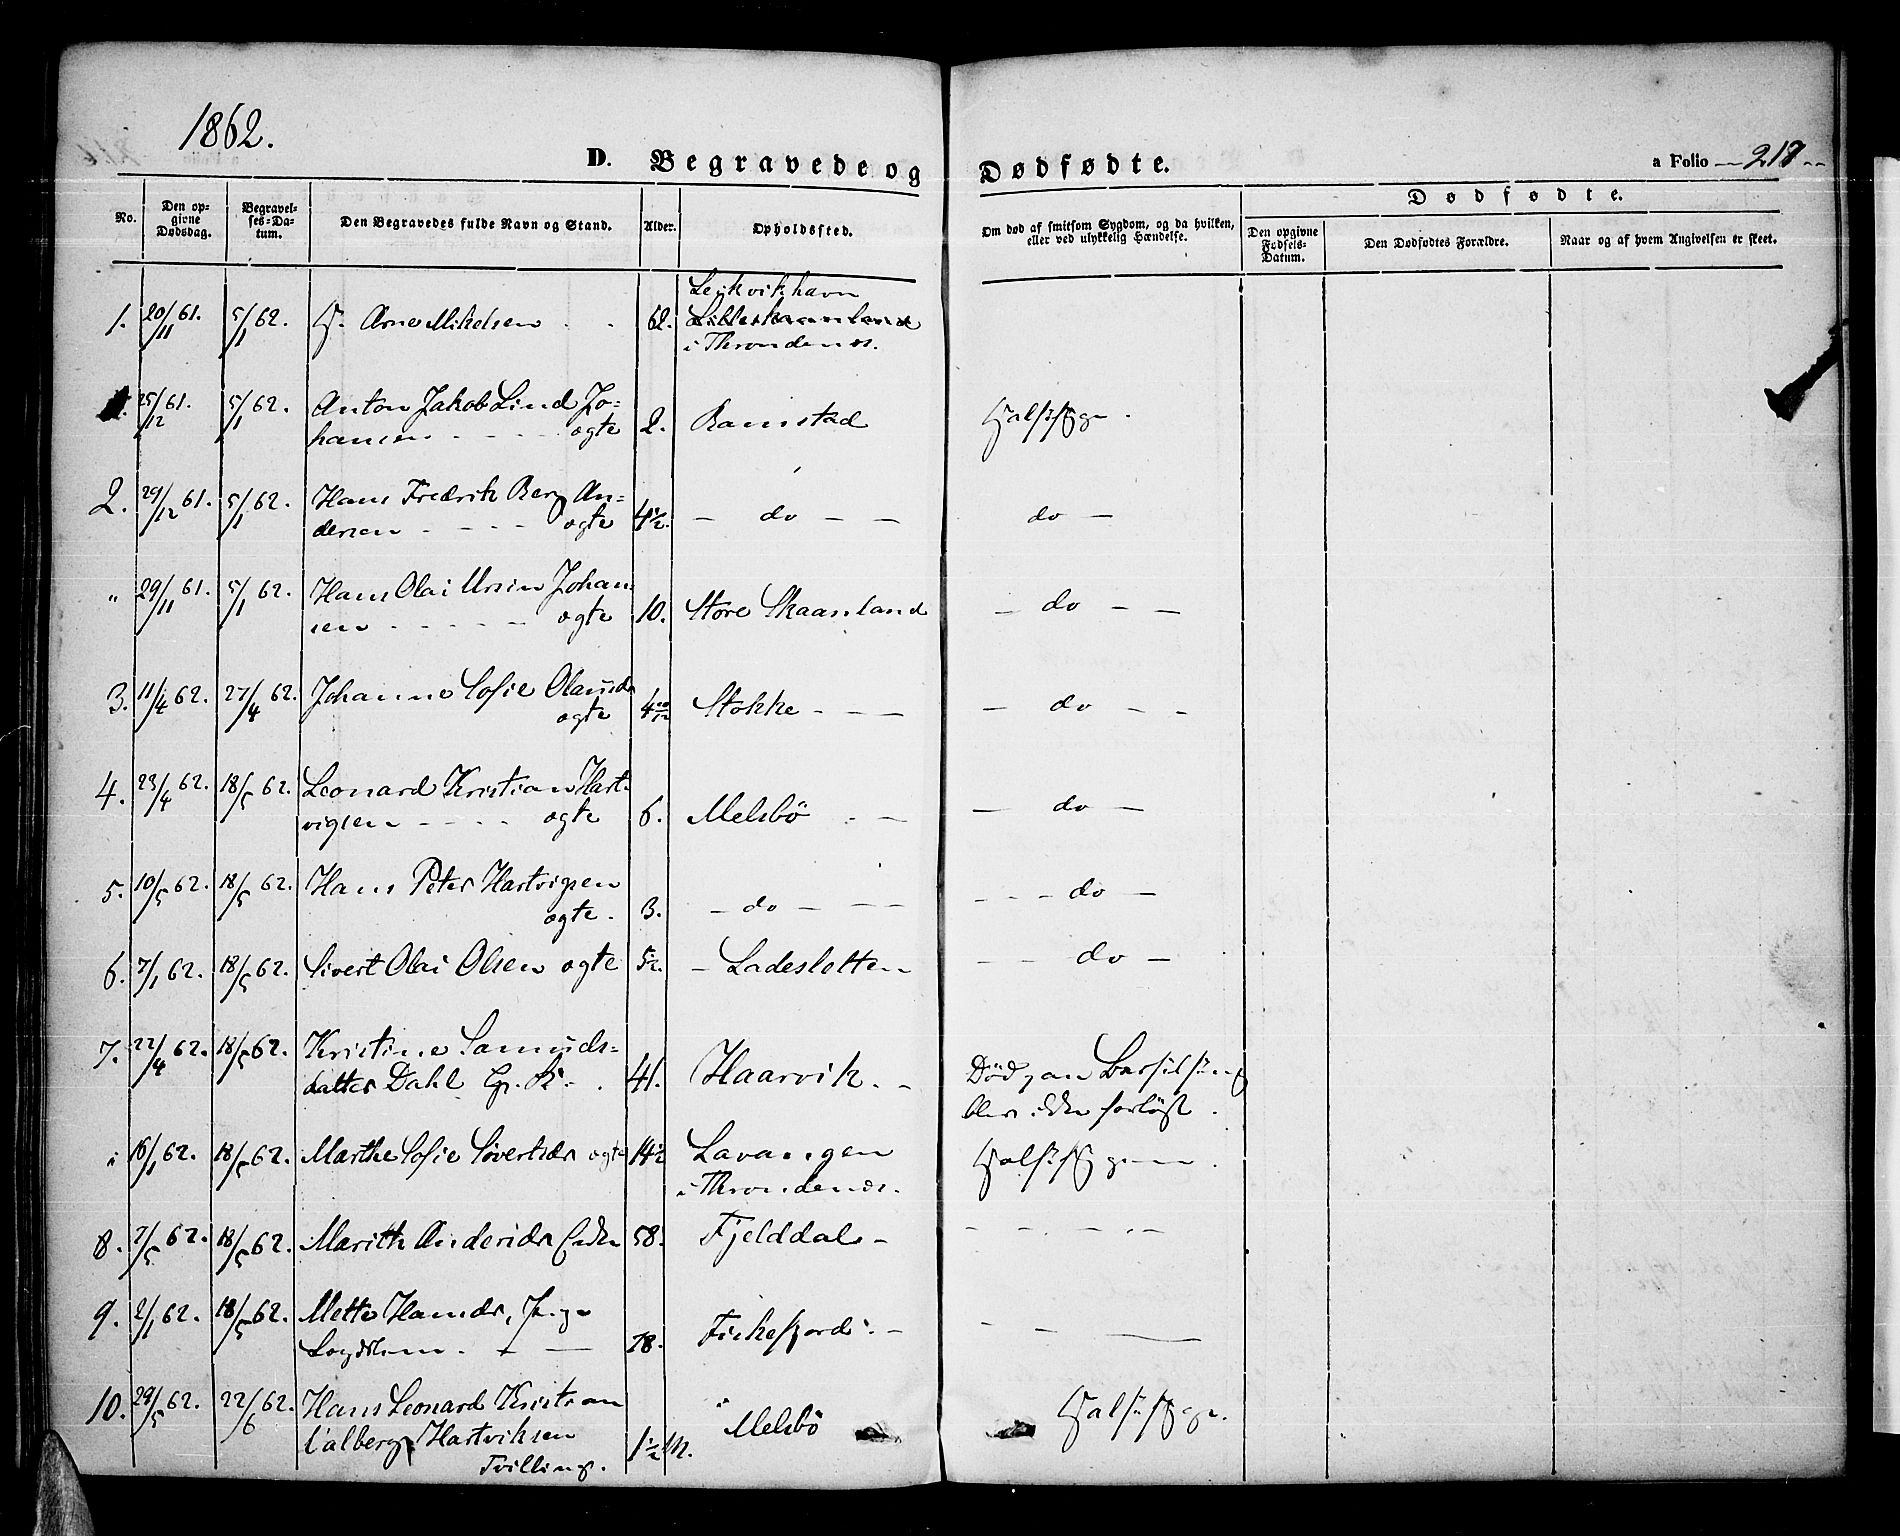 1862.
D. Begravede og Dødfødte.
a Folio 217
No.
Den opgivne Dødsdag.
Begravelses-Datum.
Den Begravedes fulde Navn og Stand.
Alder.
Opholdssted.
Om død af smitsom Sygdom, og da hvilken, eller ved ulykkelig Hændelse.
Dødfødte.
Den opgivne Fødsels-Datum.
Den Dødfødtes Forældre.
Naar og af hvem Angivelsen er skeet.
1. 20/11 61. 5/1 62. Arne Mikelsen 62. Leikvikhavn
Lilleskaanland
i Throndenæs.
25/12 61. 5/1 62. Anton Jakob Lind Jo=
hansen - - - ægte 2. Ramstad Halssyge.
2. 29/12 61. 5/1 62. Hans Fredrik Berg An=
dersen - - - ægte 4½. - do - - do -
" 29/11 61. 5/1 62. Hans Olai Ursin Johan=
sen - - - - ægte 10. Store Skaanland - do - -
3. 11/4 62. 27/4 62. Johanne Sofie Olausdr
ægte 4 10/12 Stokke - - - - do - -
4. 23/4 62. 18/5 62. Leonard Kristian Hart=
vigsen - - - - ægte 6. Melsbö - - - do -
5. 10/5 62. 18/5 62. Hans Peter Hartvigsen
ægte. 3. - do - - - - - - do -
6. 7/1 62. 18/5 62. Sivert Olai Olsen ægte 5½. - Ladesletten - - do -
7. 22/4 62. 18/5 62. Kristine Samuels=
datter Dahl G. K. 41. Haarvik. - Död paa Barselseng
blev ikke forløst.
i 16/1 62. 18/5 62. Marthe Sofie Sivertsdr ægte 14½ Lavangen
i Throndenæs. Halssygen.
8. 2/5 62. 18/5 62. Marith Andersdr Enke 58. Fjelddal - - - - -
9. 2/1 62. 18/5 62. Mette Hansdr, Pige
78. Fiskefjord. - - - -
10. 29/5 62. 22/6 62. Hans Leonard Kristian
Hartviksen
Tvilling. 1½ M. Melsbö Halssyge.